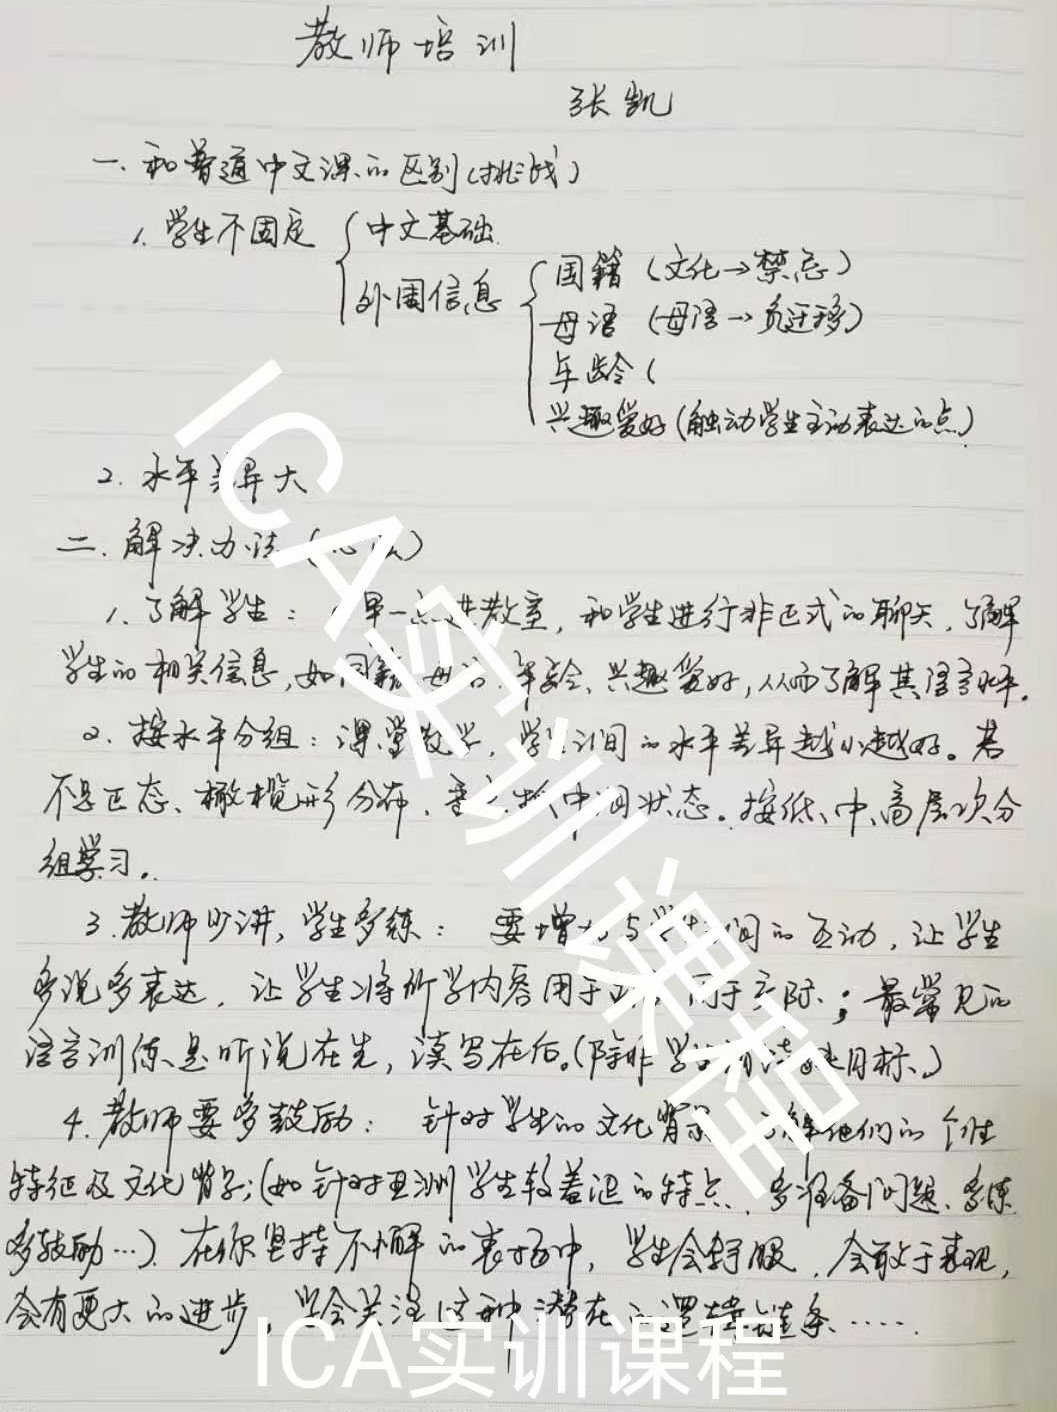 教师培训
张凯
一、和普通中文课的区别(挑战)
1. 学生不固定 中文基础
外围信息 国籍(文化→禁忌)
母语(母语→负迁移)
年龄(
兴趣爱好(触动学生主动表达的点)
2. 水平差异大
二、解决办法
1. 了解学生: 早一点进教室,和学生进行非正式的聊天,了解
学生的相关信息,如国籍、母语、年龄、兴趣爱好,从而了解其语言水平。
2. 按水平分组:课堂教学,学生间的水平差异越小越好。若
不是正态、橄榄形分布, 抓中间状态。按低、中、高层次分
组学习。
3. 教师少讲,学生多练: 要增加与学生之间的互动,让学生
多说多表达,让学生将所学内容用于 用于实际;最常见的
语言训练是听说在先,读写在后。(除非学生 目标。)
4. 教师要多鼓励: 针对学生的文化背景 了解他们的个性
特征及文化背景;(如针对亚洲学生较羞涩的特点,多准备问题、多练
多鼓励…)。在你坚持不懈的表扬中,学生会舒服,会敢于表现,
会有更大的进步, 会关注这种潜在的逻辑链条……
ICA实训课程
ICA实训课程